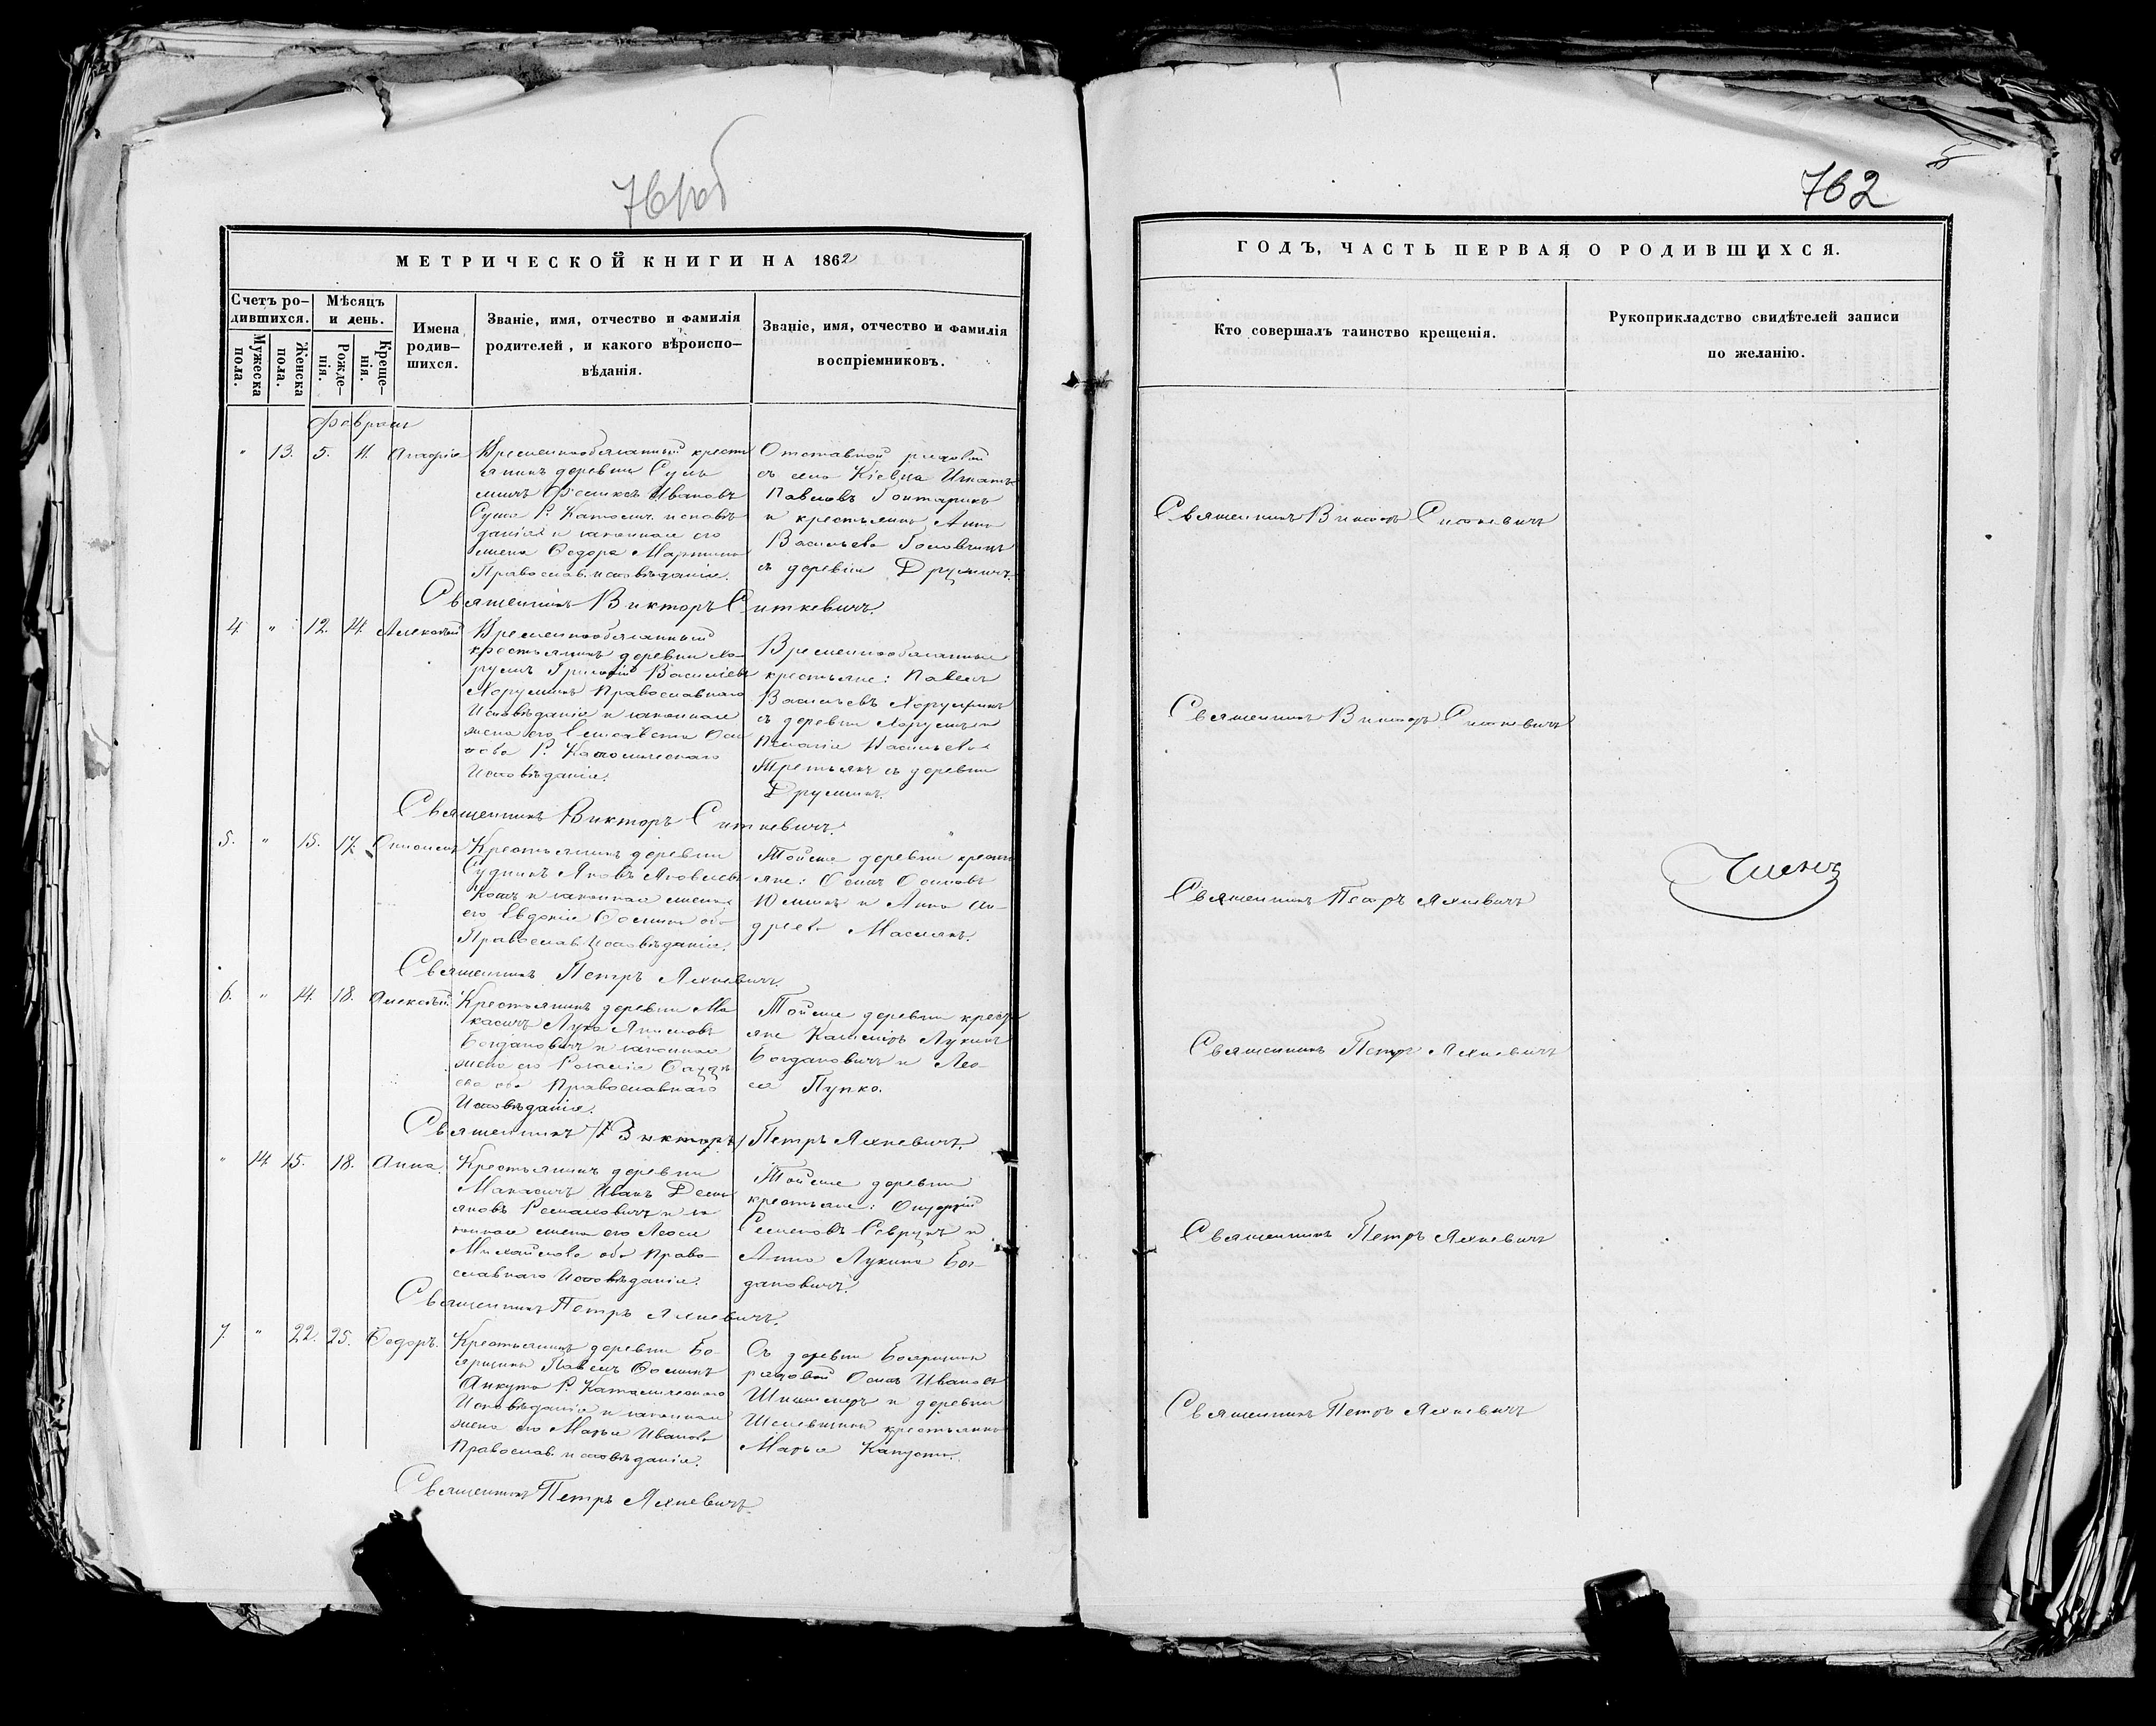 761об
762
МЕТРИЧЕСКОЙ КНИГИ НА 1862
Счетъ ро-
дившихся.
Мужеска
пола.
Женска
пола.
Мѣсяцъ
и день.
Рожде-
нія.
Креще-
нія.
Имена
родив-
шихся.
Званіе, имя, отчество и фамилія
родителей, и какого вѣроиспо-
вѣданія.
Званіе, имя, отчество и фамилія
воспріемниковъ.
Февраля
" 13. 5. 11. Агафія
Временнообязанный крестья
янинъ деревни
Феликсъ Ивановъ
Р. Католич. исповѣ
данія и законная его
жена Ѳедора
Православ. исповѣданія.
Отставной рядовой
съ села Кіевца Игнатъ
Павловъ Гонтарикъ
и крестьянка Анна
Васильева
съ деревни
Священникъ Викторъ Ситкевичъ.
4. " 12. 14. Алексѣй
Временнообязанный
крестьянинъ деревни Хо-
Григорій Васильевъ
Православнаго
Исповѣданія и законная
жена его Елисавета Оси
пова Р. Католическаго
Исповѣданія.
Временнообязанные
крестьяне: Павелъ
Васильевъ
съ деревни
Пелагія Васильева
Третьякъ съ деревни
Священникъ Викторъ Ситкевичъ.
5. " 15. 17.
Крестьянинъ деревни
Яковъ Яковлевъ
и законная жена
его Евдокія Ѳомина оба
Православ. Исповѣданія.
Тойже деревни крестья
яне: Осипъ Осиповъ
и Анна Ан-
дреева Маслякъ.
Священникъ Петръ Яхневичъ.
6. " 14. 18. Алексѣй
Крестьянинъ деревни Ма
касичъ Лука
Богдановичъ и законная
жена его
оба Православнаго
Исповѣданія.
Тойже деревни крестья
яне Казиміръ Лукинъ
Богдановичъ и Лео-
ся Пупко.
Священникъ /Викторъ/ Петръ Яхневичъ.
" 14. 15. 18. Анна.
Крестьянинъ деревни
Макасичъ Иванъ Демь
яновъ Романовичъ и за
конная жена его Леося
Михайлова оба Право-
славнаго Исповѣданія.
Тойже деревни
крестьяне: Онуфрій
Семеновъ и
Анна Лукина Бог-
дановичъ.
Священникъ Петръ Яхневичъ.
7. " 22. 25. Ѳедоръ.
Крестьянинъ деревни Бо-
ярщины Павелъ Ѳоминъ
Анкуто Р. Католическаго
Исповѣданія и законная
жена его Марья Иванова
Православ. исповѣданія.
Съ деревни Боярщины
рядовой Осипъ Ивановъ
и деревни
крестьянка
Марья Капуста.
Священникъ Петръ Яхневичъ.
ГОДЪ, ЧАСТЬ ПЕРВАЯ О РОДИВШИХСЯ.
Кто совершалъ таинство крещенія.
Рукоприкладство свидѣтелей записи
по желанію.
Священникъ Викторъ Ситкевичъ
Священникъ Викторъ Ситкевичъ
Священникъ Петръ Яхневичъ
Членъ
Священникъ Петръ Яхневичъ
Священникъ Петръ Яхневичъ
Священникъ Петръ Яхневичъ